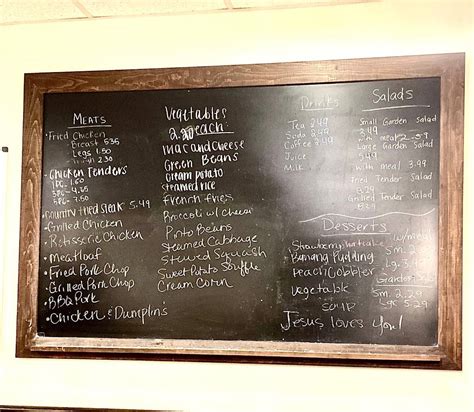 MEATS
Fried Chicken
Breast 5.35
Legs 1.50
2.30
Chicken Tenders
3PC.
5PC-
7.50
Country fried steak 5.49
Grilled Chicken
Rotisserie Chicken
Meatloaf
Fried Pork Chop
Grilled Pork Chop
BBQ Pork
Chicken & Dumplin's
Vegetables
each
mac and Cheese
Green Beans
cream potato
steamed rice
french fries
Broccoli w/ cheese
Pinto Beans
Steamed Cabbage
Stewed Squash
Sweet Potato Souffle
Cream Corn
Drinks
Tea 2.49
Soda 2.49
Coffee 2.49
Juice
Milk
Salads
Small Garden Salad
3.49
with meat
Large Garden Salad
with meal 3.99
Fried Tender Salad
Grilled Tender Salad
Desserts
Strawberry Shortcake
Banana Pudding
Peach Cobbler
Vegetable
Soup
w/meal
Sm.
Lg.
Sm. 2.29
Lg. 5.29
Jesus loves You!